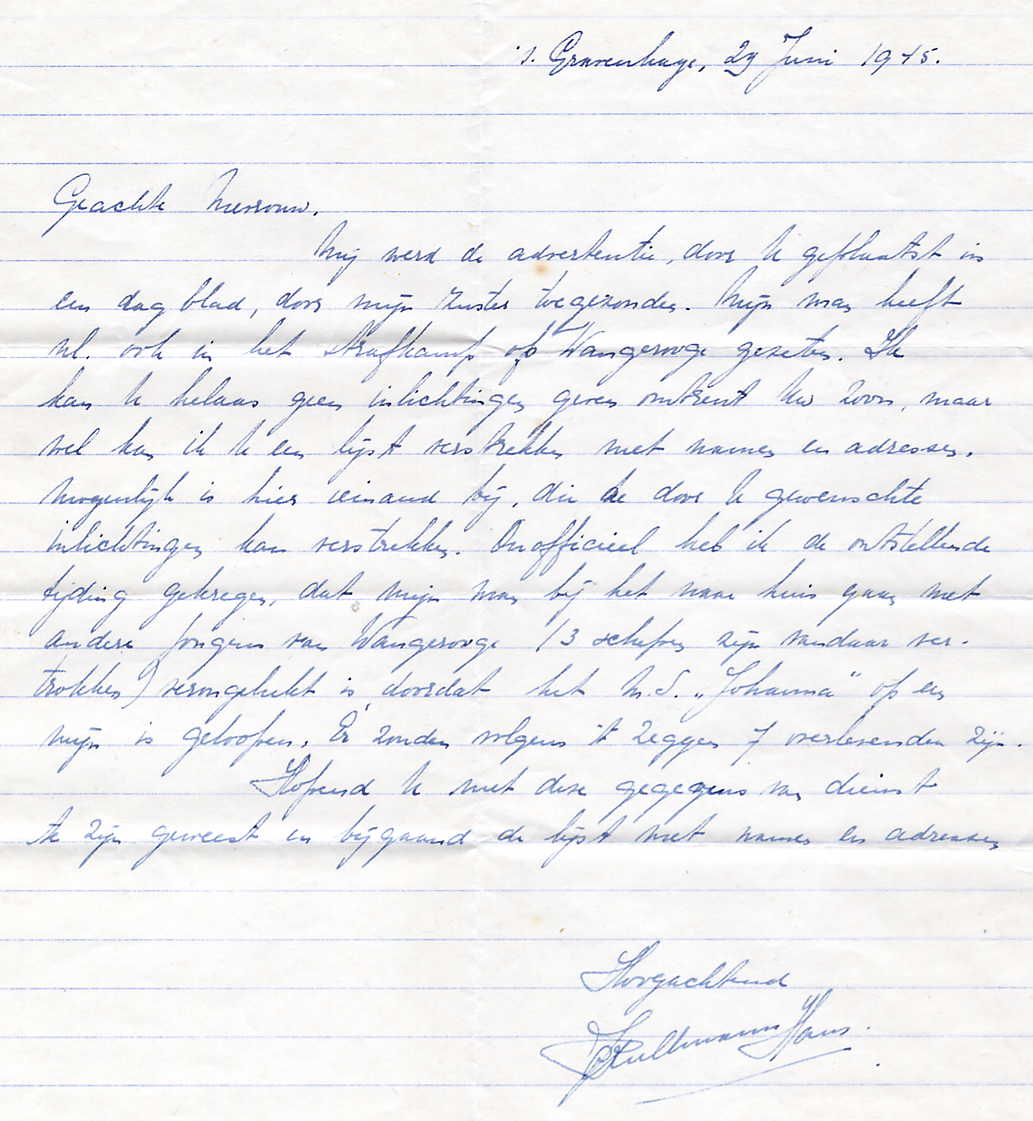 's. Gravenhage, 29 Juni 1945.
Geachte Mevrouw.
Mij werd de advertentie, door U geplaatst in
een dagblad, door mijn zuster toegezonden. Mijn man heeft
nl. ook in het strafkamp op Wangerooge gezeten. Ik
kan U helaas geen inlichtingen geven omtrent Uw zoon, maar
wel kan ik U een lijst verstrekken met namen en adressen.
Mogenlijk is hier iemand bij, die de door U gewenschte
inlichtingen kan verstrekken. Onofficieel heb ik de ontstellende
tijding gekregen, dat mijn man bij het naar huis gaan met
andere jongens van Wangerooge (3 schepen zijn vandaar ver-
trokken) verongelukt is, doordat het M.S. „Johanna" op een
mijn is geloopen. Er zouden volgens 't zeggen 7 overlevenden zijn.
Hopend U met deze gegevens van dienst
te zijn geweest en bijgaand de lijst met namen en adressen
Hoogachtend